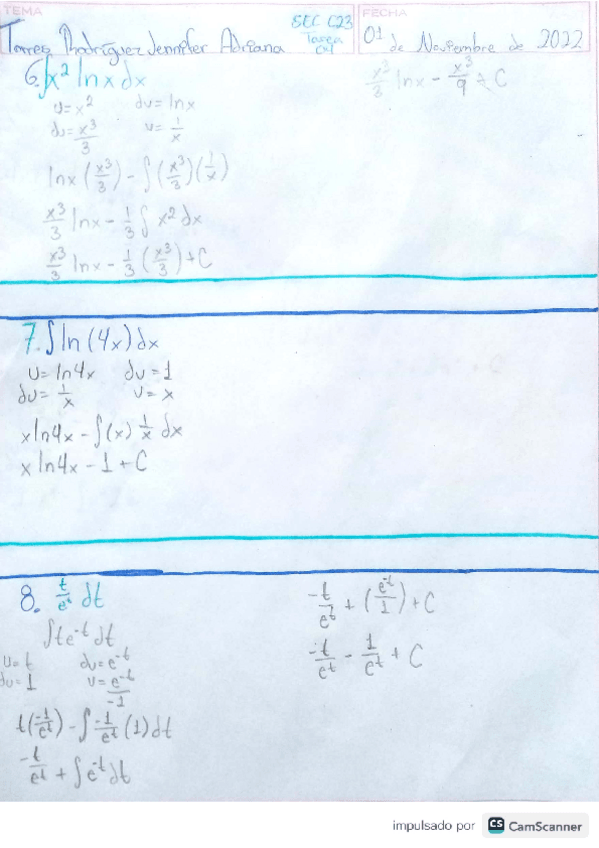 TEMA
SEC C23
Tarea 04
FECHA
Torres Rodríguez Jennifer Adriana
01 de Noviembre de 2022
6. ∫x² lnx dx
u=x² dv=lnx
du=x³/3 v=1/x
lnx (x³/3) - ∫(x³/3)(1/x)
x³/3 lnx - 1/3 ∫ x² dx
x³/3 lnx - 1/3 (x³/3) + C
x³/3 lnx - x³/9 + C
7. ∫ln(4x)dx
u=ln4x dv=1
du=1/x v=x
xln4x - ∫(x) 1/x dx
x ln4x - 1 + C
8. t/eᵗ dt
∫te⁻ᵗdt
u=t dv=e⁻ᵗ
du=1 v=e⁻ᵗ/-1
t(-1/eᵗ) - ∫-1/eᵗ (1)dt
-t/eᵗ + ∫e⁻ᵗdt
-t/eᵗ + (e⁻ᵗ/1) + C
-t/eᵗ - 1/eᵗ + C
impulsado por CS CamScanner